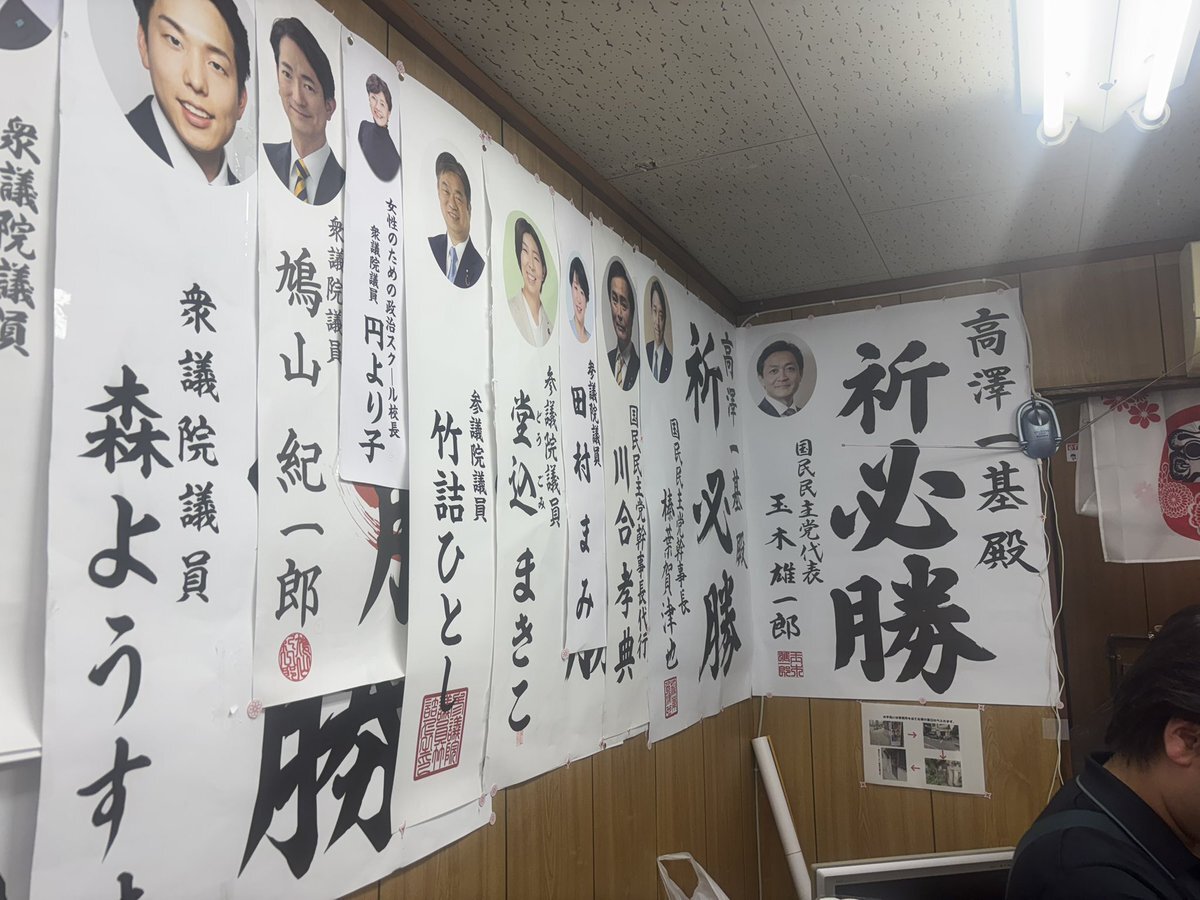 高澤一基殿
祈必勝
国民民主党代表
玉木雄一郎
高澤一基殿
祈必勝
国民民主党幹事長
榛葉賀津也
国民民主党幹事長代行
川合孝典
参議院議員
田村まみ
参議院議員
堂込まきこ
どうごみ
参議院議員
竹詰ひとし
女性のための政治スクール校長
衆議院議員
円より子
衆議院議員
鳩山紀一郎
勝
衆議院議員
森ようすけ
衆議院議員